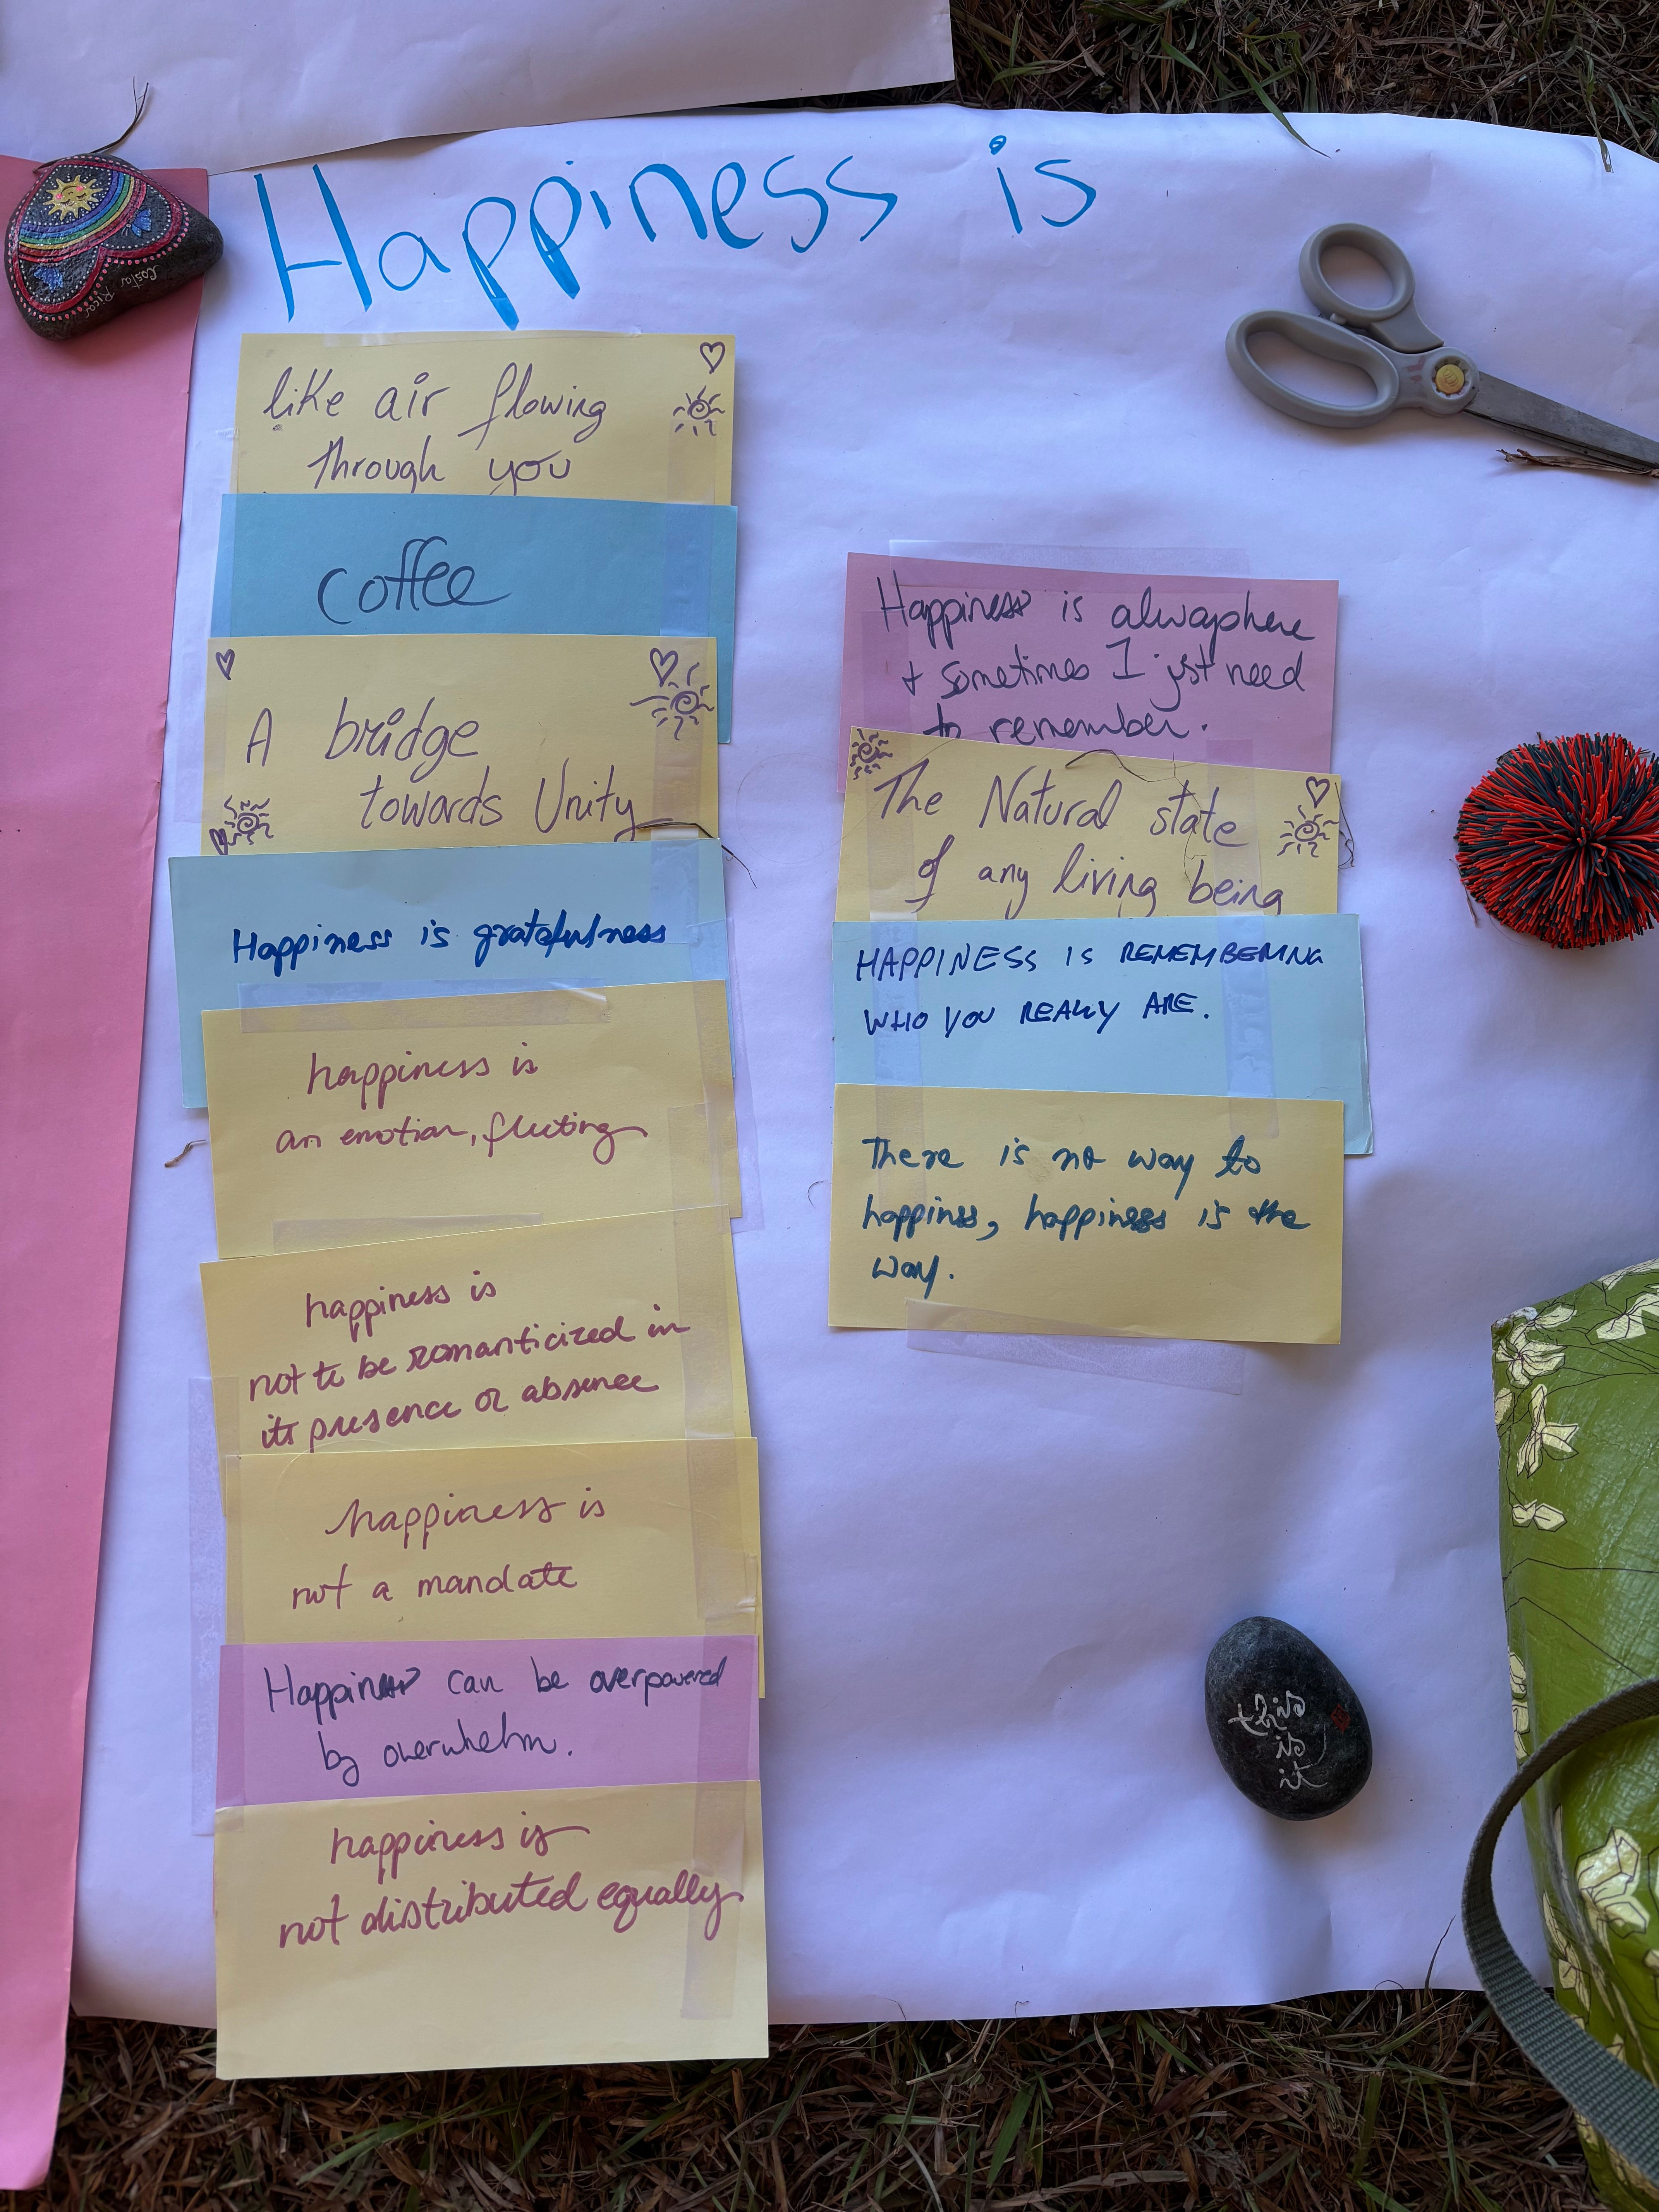 Happiness is
Costa Rica
like air flowing
through you
coffee
A bridge
towards Unity
Happiness is gratefulness
happiness is
an emotion, fleeting
happiness is
not to be romanticized in
its presence or absence
happiness is
not a mandate
Happiness can be overpowered
by overwhelm.
happiness is
not distributed equally
Happiness is always here
+ sometimes I just need
to remember.
The Natural state
of any living being
HAPPINESS IS REMEMBERING
WHO YOU REALLY ARE.
There is no way to
happinss, happiness is the
way.
this
is
it